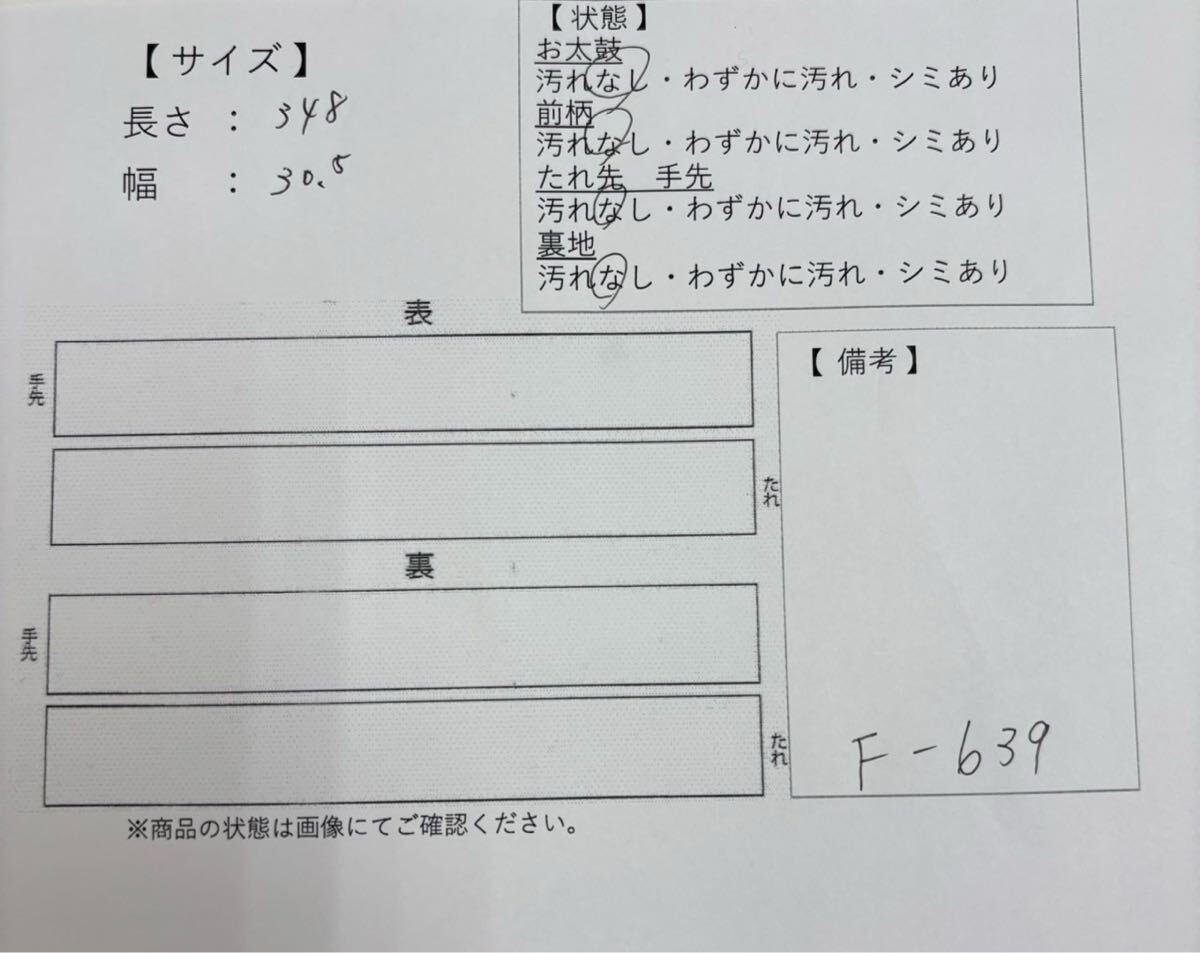 【 サイズ 】
長さ ： 348
幅 ： 30.5
【 状態 】
お太鼓
汚れなし・わずかに汚れ・シミあり
前柄
汚れなし・わずかに汚れ・シミあり
たれ先 手先
汚れなし・わずかに汚れ・シミあり
裏地
汚れなし・わずかに汚れ・シミあり
表
手先
たれ
裏
手先
たれ
【 備考 】
F-639
※商品の状態は画像にてご確認ください。